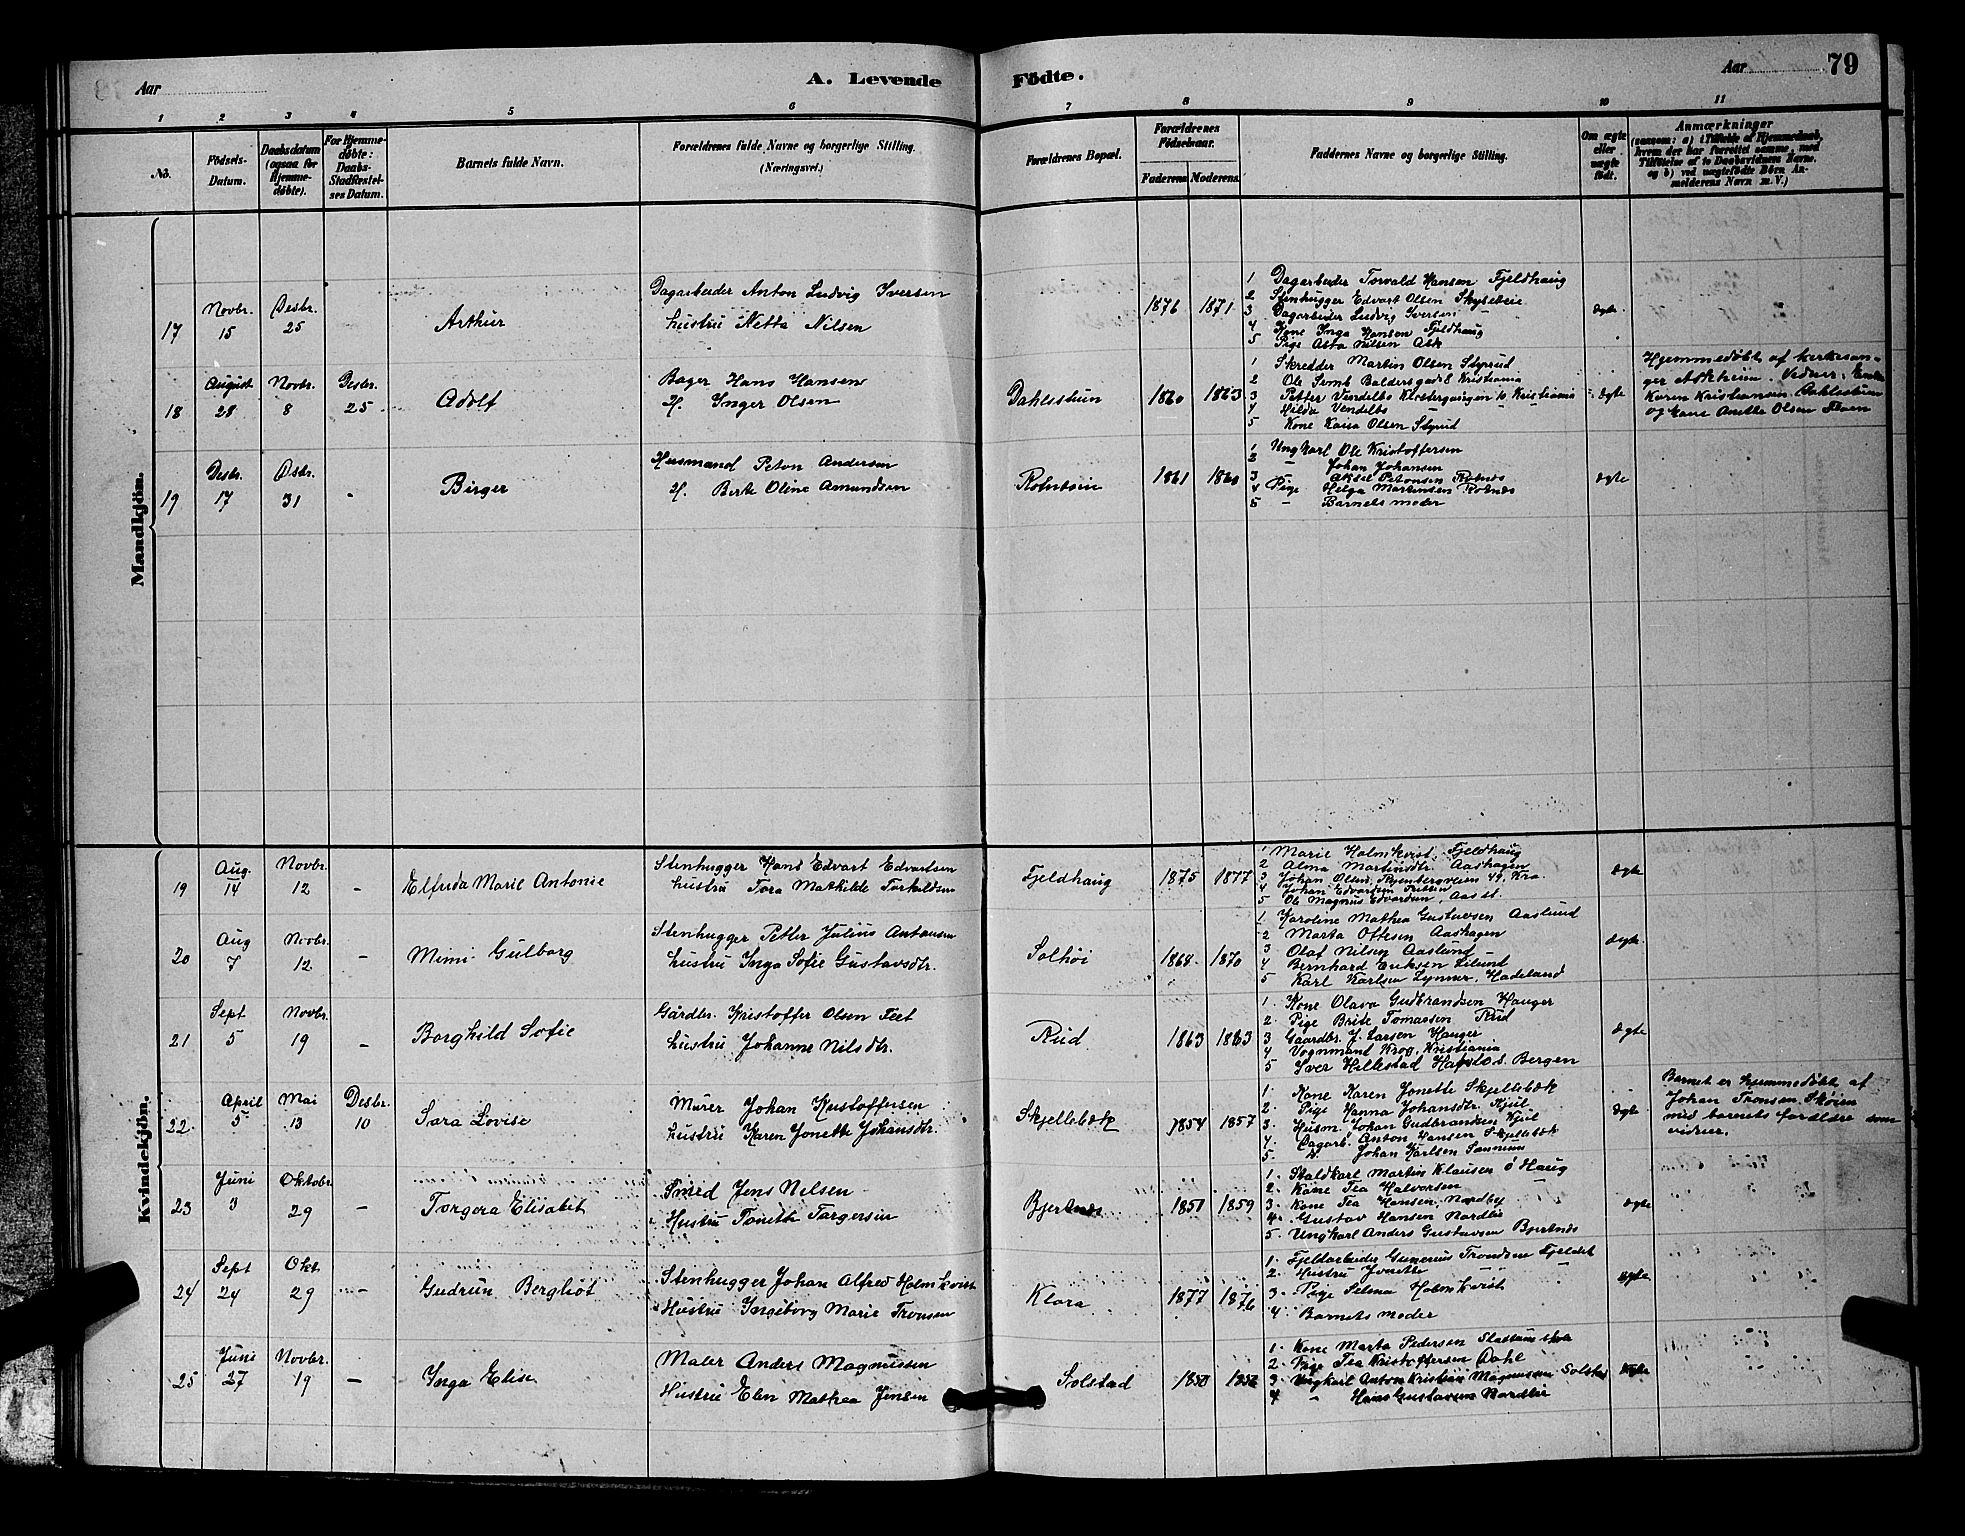 Aar
A. Levende
Födte.
Aar
79
1 2 3 4 5 6 7 8 9 10 11
No.
Födsels-
Datum.
Daabsdatum
(ogsaa for
Hjemme-
döbte).
For Hjemme-
döbte:
Daabs-
Stadfæstel-
ses Datum.
Barnets fulde Navn.
Forældrenes fulde Navne og borgerlige Stilling.
(Næringsvei.)
Forældrenes Bopæl.
Forældrenes
Födselsaar.
Faderens
Moderens
Faddernes Navne og borgerlige Stilling.
Om ægte
eller
uægte
födt.
Anmærkninger
(saasom: a) i Tilfælde af Hjemmedaab,
hvem der har forrettet samme, med
Tilföielse af to Daabsvidners Navne,
og b) ved uægtefödte Börn An-
melderens Navn m.V.)
Mandkjön.
17
Novbr.
15
Desbr.
25
Arthur
Dagarbeider Anton Ludvig Iversen
hustru Netta Nilsen
1876
1871
1 Dagarbeider Torvald Hansen Fjeldhaug
2 Stenhugger Edvart Olsen
3 Dagarbeider Ludvig Iversen
4 Kone Inga Hansen Fjeldhaug
5 Pige Asta Nilsen Ask
ægte
18
August
28
Novbr.
8
Desbr.
25
Adolf
Bager Hans Hansen
H. Inger Olsen
Dahlsstuen
1860
1863
1 Skredder Martin Olsen Styrud
2 Ole Baldersgade 8 Kristiania
3 Petter Vendelbo 10 Kristiania
4 Hilda Vendelbo
5 Kone Olsen Styrud
ægte
Hjemmedøbt af kirkesan-
ger Askheim. Vidner:
Karen Kristiansen
og Anette Olsen
19
Desbr.
17
Dsbr.
31
-
Birger
Husmand Andersen
H. Berte Oline Amundsen
1861
1860
1 Ungkarl Ole Kristoffersen
2 - Johan Johansen
3 - Aksel
4 Pige Helga Martinsen
5 - Barnets moder
ægte
Kvindekjön.
19
Aug.
14
Novbr.
12
-
Elfrida Marie Antonie
Stenhugger Hans Edvart Edvartsen
hustru Tora Mathilde Torkildsen
Fjeldhaug
1875
1877
1 Marie Holmkvist, Fjeldhaug
2 Alma Martinsdtr. Aashagen
3 Johan Olsen, 49, Kra.
4 Johan Edvardsen
5 Ole Magnus Edvardsen,
ægte
20
Aug
7
Novbr.
12
-
Mimi Gulborg
Stenhugger Petter Julius Antonsen
hustru Inga Sofie Gustavsdtr.
Solhøi
1868
1870
1. Karoline Mathea Gustavsen Aaslund
2 Marta Oftesen Aashagen
3 Olaf Nilsen Aaslund
4 Bernhard Eriksen
5 Karl Karlsen Lynner, Hadeland
ægte
21
Sept
5
Novbr.
19
-
Borghild Sofie
Gårdbr. Kristoffer Olsen Feet
hustru Johanne Nilsdtr.
Rud
1863
1863
1. Kone Olava Gudbrandsen Hauger
2. Pige Brite Tomassen Rud
3 Gaardbr. J. Larsen Hauger
4 Vognmand Krog, Kristiania
5 Iver Hillestad Hafslo s. Bergen
ægte
22.
April
5
Mai
13
Desbr.
10
Sara Lovise
Murer Johan Kristoffersen
hustru Karen Jonette Johansdtr.
Skjellebæk
1854
1857
1. Kone Karen Jonette Skjellebæk
2. Pige Hanna Johansdtr. Kjul
3. Husm. Johan Gudbrandsen Kjul
4. Dagarb. Anton Hansen Skjellebæk
5. Johan Karlsen
ægte
Barnet er hjemmedøbt af
Johan Tronsen
med barnets forældre som
vidner.
23
Juni
3
Oktobr
29
-
Torgera Elisabet
Smed Jens Nilsen
Hustru Tonette Torgersen
Bjertnæs
1851
1859
1. Staldkarl Martin Klausen ö Haug
2. Kone Tea Halvorsen
3. Kone Tea Hansen, Nordby
4. Gustav Hansen Nordlie
5. Ungkarl Anders Gustavsen Bjertnæs
ægte
24
Sept
24
Okt.
29
-
Gudrun Bergliot
Stenhugger Johan Alfred Holmkvist
Hustru Ingeborg Marie Tronsen
Klara
1877
1876
1. Fjeldarbeider Gunerius Trondsen Fjeldet
2. Hustru Jonette
3. Pige Selma Holmkvist
4. Barnets moder
ægte
25
Juni
27
Novbr.
19
-
Inga Elise
Maler Anders Magnussen
Hustru Elen Mathea Jensen
Solstad
1850
1. Kone Marta Pedersen
2. Pige Tea Kristoffersen Dahl
3. Ungkarl Anton Kristian Magnussen Solstad
4 - Hans Gustavsen Nordlie
ægte